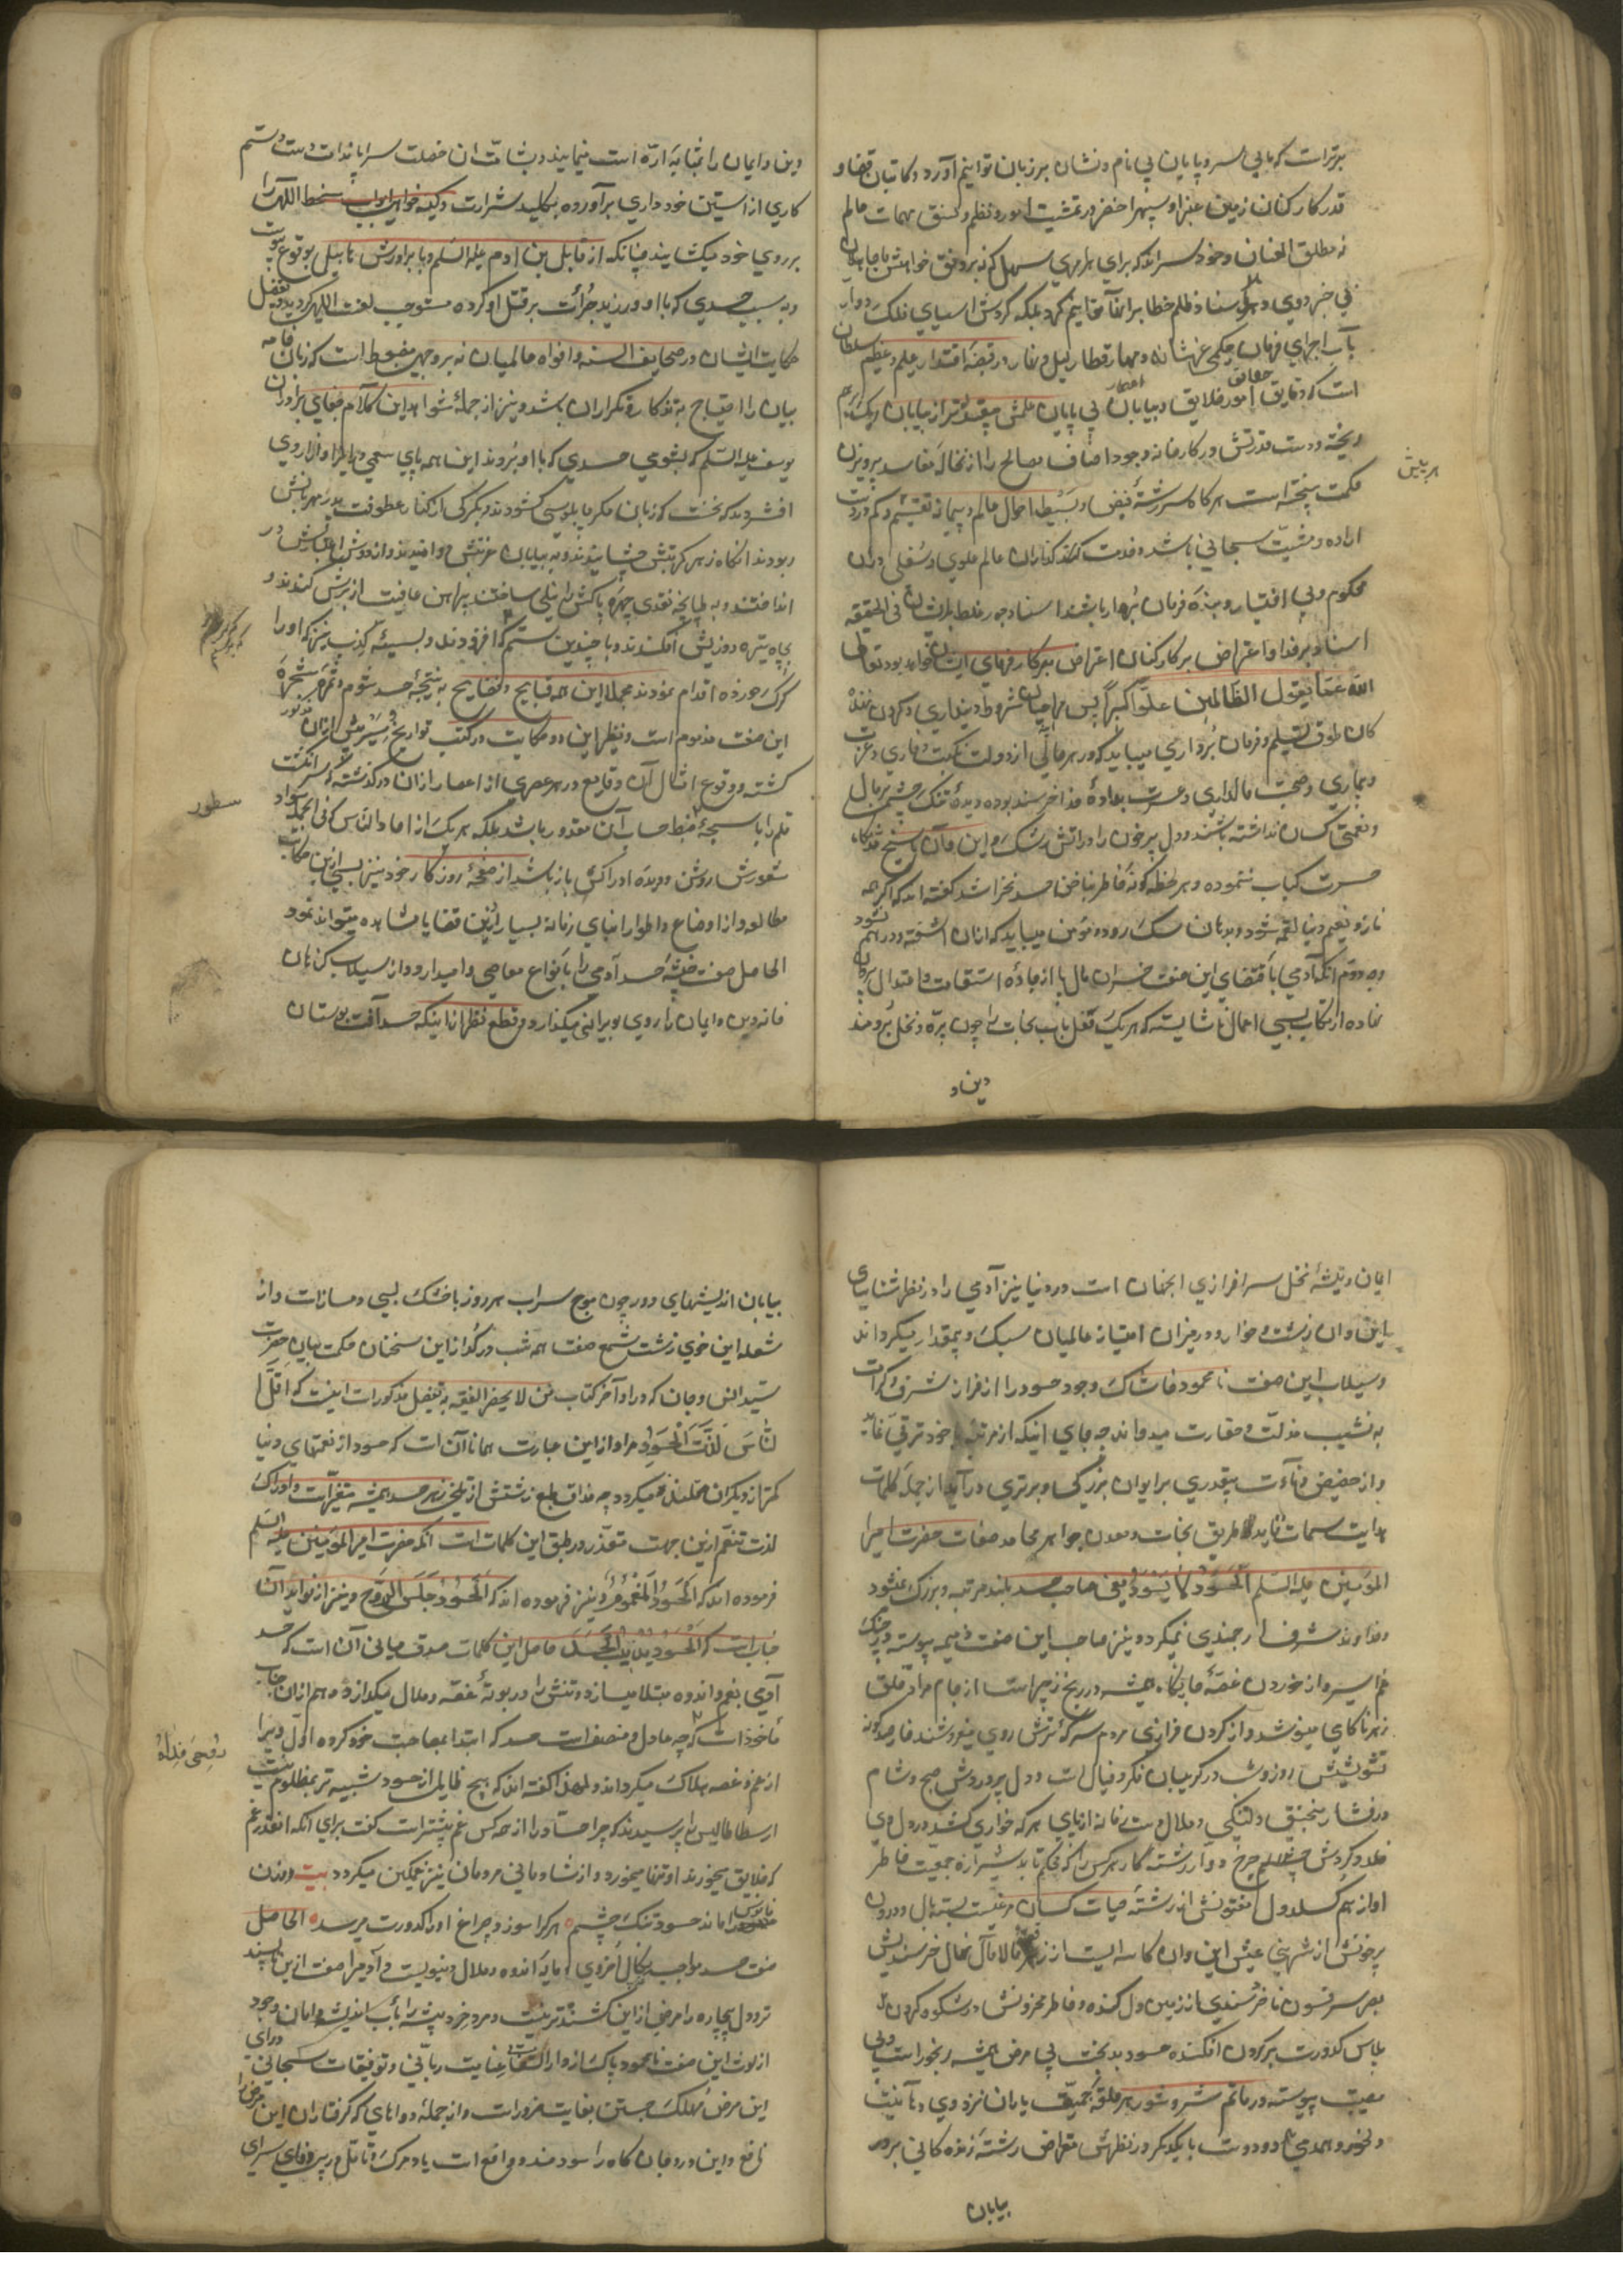 برترات که بابی سر و پایان بی نام و نشان بر زبان توانیم آورد و کاتبان قضا و
قدر کارکنان زمین غبرا و سپهر اخضر در تمشیت امور و نظم و نسق مهمات عالم
نه مطلق العنان و خودسرانند که برای هر مهمی سهل که نه بر وفق خواهش ما جاهلان
بآب اجرای فرمان و حکمی عزشانه و مهار قطار لیل و نهار در قبضه اقتدار علم و عظیم سلطان
است که دقایق امور خلایق و بیابان بی پایان علمش بیقدرتر از بیابان ریک
ریخته و دست قدرتش در کارخانه وجود اصناف مصالح را از نخاله مفاسد پرویزن
حکمت بیخته است هر کاه سر رشته قبض و بسیط احوال عالم و پیمانه تقسیم و کم در دست
اراده و مشیت سبحانی باشد و خدمت گذاران عالم علوی و سفلی دران
محکوم و بی اختیار و بنده فرمان بردار باشند اسناد جور غلط بدیشان فی الحقیقه
اسناد بر خدا و اعتراض بر کارکنان اعتراض بر کارفرمای ایشان خواهد بود تعالی
الله عما یقول الظالمین علوا کبیرا پس مهاجران شروط دینداری و کردن نهند
کان طوق تسلیم و فرمان برداری میباید که در هر حالی از دولت و نکبت و خواری و عزت
و بیماری و صحت و مالداری و عسرت بداده خدا خرسند بوده دیده تنک چشم بر مال
و نعمت کسان نداشته باشند و دل پر خون را در آتش رشک این و آن بسیخ
حسرت کباب ننموده و هر لحظه کونه خاطر بناخن حسد نخراشند گفته اند که اگر همه
ناز و نعیم دنیا لقمه شود و بدهان سک رود مؤمن میباید که ازان آشفته و درهم نشود
وجه دوم آنکه آدمی باقتضای این صفت خسران مال پا از جاده استقامت و اعتدال بیرون
نهاده ارتکاب بسی اعمال ناشایسته که هر یک قفل باب نجات را چون پره و نخل برومند
دین و
هر یبش
دین و ایمان را بمثابه اره است مینمایند و بشآمت ان خصلت سراپا نداامت دست ستم
کاری از آستین خودداری برآورده بکلید شرارت و کینه خواهی ابواب سخط الهی را
بر روی خود میکشایند چنانکه از قابیل بن آدم علیه السلم و با برادرش هابیل بوقوع پیوست
و به سبب حسدی که با او ورزید جرأت بر قتل او کرده مستوجب لعنت الهی کردید و تفصیل
حکایت ایشان در صحایف السنه و افواه عالمیان نه بر وجهی مضبوط است که زبان خامه
بیان را احتیاج به تذکار و تکرار ان باشد و نیز از جمله شواهد این کلام جفای برادران
یوسف علیه السلم که بشومی حسدی که با او بردند این همه پای سعی در ایذا و آزار وی
افشردند که نخست که زبان مکر چاپلوسی کشودند و بکرکی از کنار عطوفت پدر مهربانش
ربودند انکاه زهر کربتش چشانیدند و به بیابان غربتش دوانیدند و از دوش اعزازش در
انداختند و به طپانچه تعدی چهره پاکش را نیلی ساختند پیراهن عافیت از برش کندند و
بچاه تیره روزیش افکندند و با چندین ستم که افزودند و بسیئه کذب نیز که او را
کرک خورده اقدام نمودند مجملا این همه قبایح و فضایح به نتیجه حسد شوم و ثمره شجره
این صفت مذموم است و نظیر این دو حکایت در کتب تواریخ و سیر بیش ازان مذکور
کشته و وقوع امثال آن وقایع در هر عصری از اعصار ازان درگذشته که سر انکشت
قلم را با سبحه ضبط حساب آن مقدور باشد بلکه هر یک از احاد الناس که فی الجمله سواد
شعورش روشن و دیده ادراکش باز باشد از صفحه روزکار خود نیز بسی ازین حکایت
مطالعه و از اوضاع و اطوار ابنای زمانه بسیار ازین قضایا مشاهده میتواند نمود
الحاصل صفت خبیثه حسد آدمی را بانواع معاصی وامیدارد و از سیلاب کناهان
خانه دین و ایمان را روی بویرانی میکذارد و قطع نظر از اینکه حسد آفت بوستان
سطور
ایمان و تیشه نخل سرافرازی انجهان است در دنیا نیز آدمی را در نظر شناسای
این و ان زشت و خوار و در میزان امتیاز عالمیان سبک و بیمقدار میکرداند
و سیلاب این صفت نامحمود خاشاک وجود حسود را از فراز شرف و کرامت
به نشیب مذلت و حقارت میدواند چه جای اینکه از مرتبه خود ترقی نماید
و از حضیض دنائت و بیقدری بر ایوان بزرکی و برتری درآید از جمله کلمات
هدایت سمات قاید طریق نجات و معدن جواهر محامد صفات حضرت امیر
المؤمنین علیه السلم الحسود لا یسود یعنی صاحب حسد بلند مرتبه و بزرک نمیشود
و خداوند شرف ارجمندی نمیکردد و نیز صاحب این صفت ذمیمه پیوسته در چنک
غم اسیر و از خوردن غصه جانکاه همیشه در رنج زحیر است از جام مرادق قلق
زهر ناکامی مینوشد و از کردن فرازی مردم سرکه ترش رویی میفروشد خار صدکونه
تشویشش روز و شب در کریبان فکر و خیال است و دل پر دردش صبح و شام
در فشار منجنیق دلتنکی و ملال
اوازهم کسلد دل مفتونش از رشته حیات کسان مرغیست بسته بال و درون
پر خونش از شهینی عیش این و ان کاسه ایست از زهر مالامال نهال خرسندیش
بصرصر فسون ناخرسندی از زمین دل کنده و خاطر محزونش در شکوه کردون
لباس کدورت بر کردن افکنده حسود بدبخت بی مرض همیشه رنجور است و بی
مصیبت پیوسته در ماتم شر و شور هر حلقه جمعیت یاران نزد وی دهانیست
دلخور و همدمی دو دوست با یکدیکر در نظرش مقراض رشته زنده کانی بر در
بیابان
بیابان اندیشهای دور چون موج سراب هر روز با خشک لبی دمساز است و از
شعله این خوی زشت شمع صفت همه شب در کداز این سخنان حکمت بیان حضرت
سید انس و جان که در اواخر کتاب من لا یحضر الفقیه به تفصیل مذکور است اینست که اقل ا
لناس لذة الحسود مراد از این عبارت همانا آن است که حسود از نعمتهای دنیا
کمتر از دیکران محظوظ میکردد چه مذاق طبع زشتش از تلخی زهر حسد همیشه متغیر است و ادراک
لذت تنعم ازین جهت متعذر و بر طبق این کلمات است آنکه حضرت امیر المؤمنین علیه السلم
فرموده اند که الحسود المغموم و نیز فرموده اند که الحسود جلس الروح و نیز از فواید آن
جناب است که الحسود یذیب الجسد حاصل این کلمات صدق مبانی آن است که حسد
آدمی بغم و اندوه مبتلا میسازد و تنش را در بوته غصه و ملال میکدازد و هم ازان جناب
ماخوذ است که چه عادل و منصف است حسد که ابتدا بمصاحب خود کرده اول ویرا
از غم و غصه هلاک میکرداند و لهذا گفته اند که هیچ ظالمی از حسود شبیه تر بمظلوم نیست
ارسطاطالیس را پرسیدند که چرا حساد را از همه کس غم بیشتر است گفت برای انکه آنقدر غم
که خلایق میخورند او تنها میخورد و از شادمانی مردمان نیز غمکین میکردد بیت روزن
فانوس را ماند حسود تنک چشم هر کرا سوزد چراغ او را کدورت میرسد الحاصل
صفت حسد موجب نکال اخروی و مایه اندوه و ملال دنیویست و آدمی را صفت ازین ناپسند
تر و دل بیچاره را مرضی ازین کشنده تر نیست و مرد خرد پیشه را بآب اندیشه دامان وجود
از لوث این صفت نامحمود پاک از دار الشفای عنایت ربانی و توفیقات سبحانی دوای
این مرض مهلک جستن بغایت ضرور است و از جمله دواهای که کرفتاران این مرض را
نافع و این درد جان کاه را سودمند و واقع است یاد مرک و تامل در بیوفایی سرای